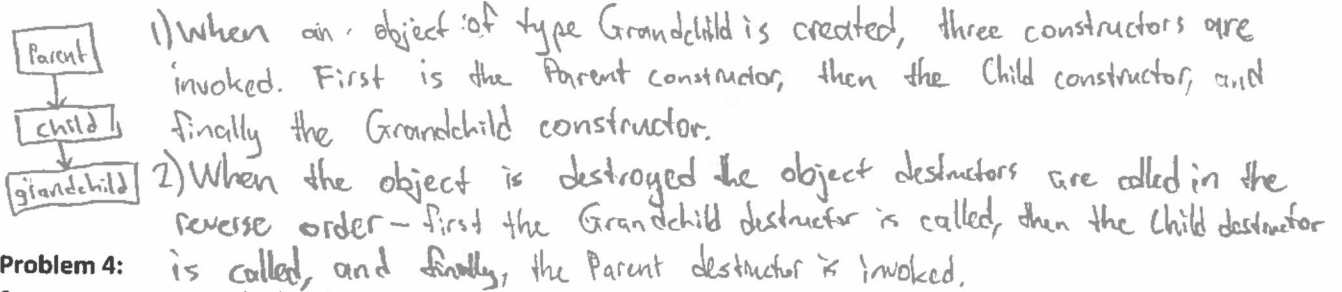 1) When an object of type Grandchild is created, three constructors are
Parent
invoked. First is the Parent constructor, then the Child constructor, and
child
finally the Grandchild constructor.
grandchild
2) When the object is destroyed the object destructors are called in the
reverse order – first the Grandchild destructor is called, then the Child destructor
Problem 4:
is called, and finally, the Parent destructor is invoked.